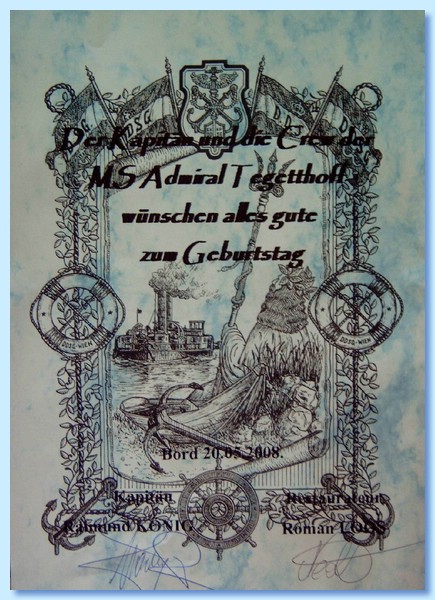 DDSG
Der Kapitän und die Crew der
MS Admiral Tegetthoff
wünschen alles gute
zum Geburtstag
DDSG-WIEN
DDSG-WIEN
Bord 20.05.2008.
Kapitän
Restaurateur
Raimund KÖNIG
Roman